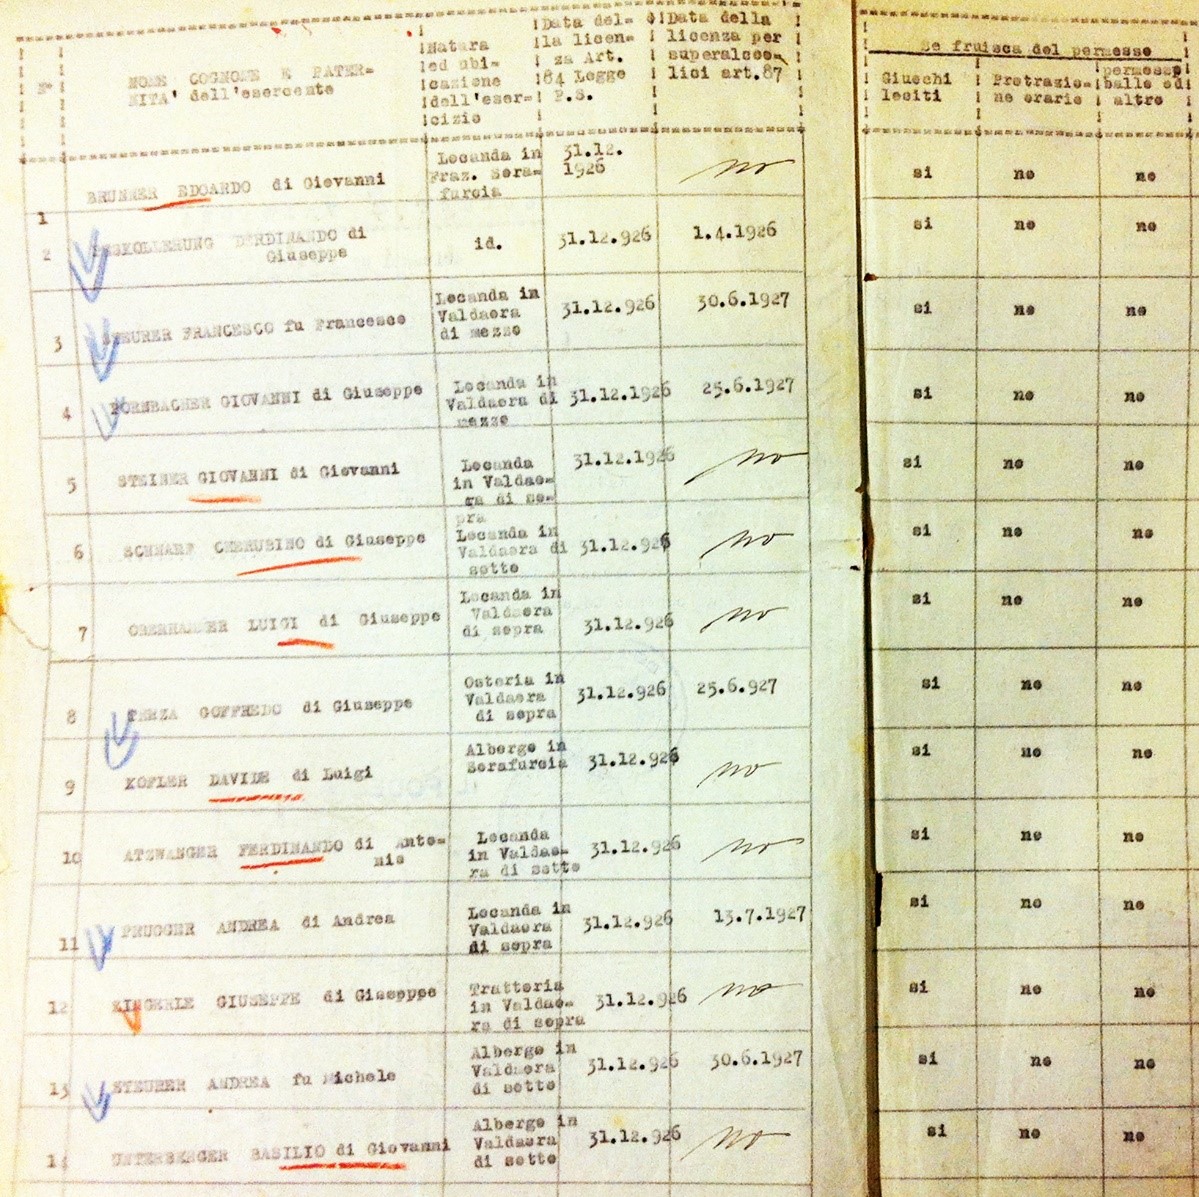 Nº
NOME COGNOME E PATER-
NITA' dell'esercente
Natura
ed ubi-
cazione
dell'eser-
cizio
Data del-
la licen-
za Art.
84 Legge
P.S.
Data della
licenza per
superalcoo-
lici art.87
Se fruisca del permesso
Giuochi
leciti
Protrazio-
ne orario
permesso
ballo ed
altro
1
BRUNNER EDOARDO di Giovanni
Locanda in
Fraz. Sora-
furcia
31.12.
1926
no
si
no
no
2
DI
Giuseppe
id.
31.12.926
1.4.1926
si
no
no
3
STEURER FRANCESCO fu Francesco
Locanda in
Valdaora
di mezzo
31.12.926
30.6.1927
si
no
no
4
PORNBACHER GIOVANNI di Giuseppe
Locanda in
Valdaora di
mezzo
31.12.1926
25.6.1927
si
no
no
5
STEINER GIOVANNI di Giovanni
Locanda
in Valdao-
ra di so-
pra
31.12.1926
no
si
no
no
6
SCHNARF CHERUBINO di Giuseppe
Locanda in
Valdaora di
sotto
31.12.926
no
si
no
no
7
OBERHAMMER LUIGI di Giuseppe
Locanda in
Valdaora
di sopra
31.12.926
no
si
no
no
8
GOFFREDO di Giuseppe
Osteria in
Valdaora
di sopra
31.12.926
25.6.927
si
no
no
9
KOFLER DAVIDE di Luigi
Albergo in
Sorafurcia
31.12.926
no
si
no
no
10
ATZWANGER FERDINANDO di Anto-
nio
Locanda
in Valdao-
ra di sotto
31.12.926
no
si
no
no
11
PRUGGER ANDREA di Andrea
Locanda in
Valdaora
di sopra
31.12.926
13.7.1927
si
no
no
12
ZINGERLE GIUSEPPE di Giuseppe
Trattoria
in Valdao-
ra di sopra
31.12.926
no
si
no
no
13
STEURER ANDREA fu Michele
Albergo in
Valdaora
di sotto
31.12.926
30.6.1927
si
no
no
14
UNTERBERGER BASILIO di Giovanni
Albergo in
Valdaora
di sotto
31.12.926
no
si
no
no